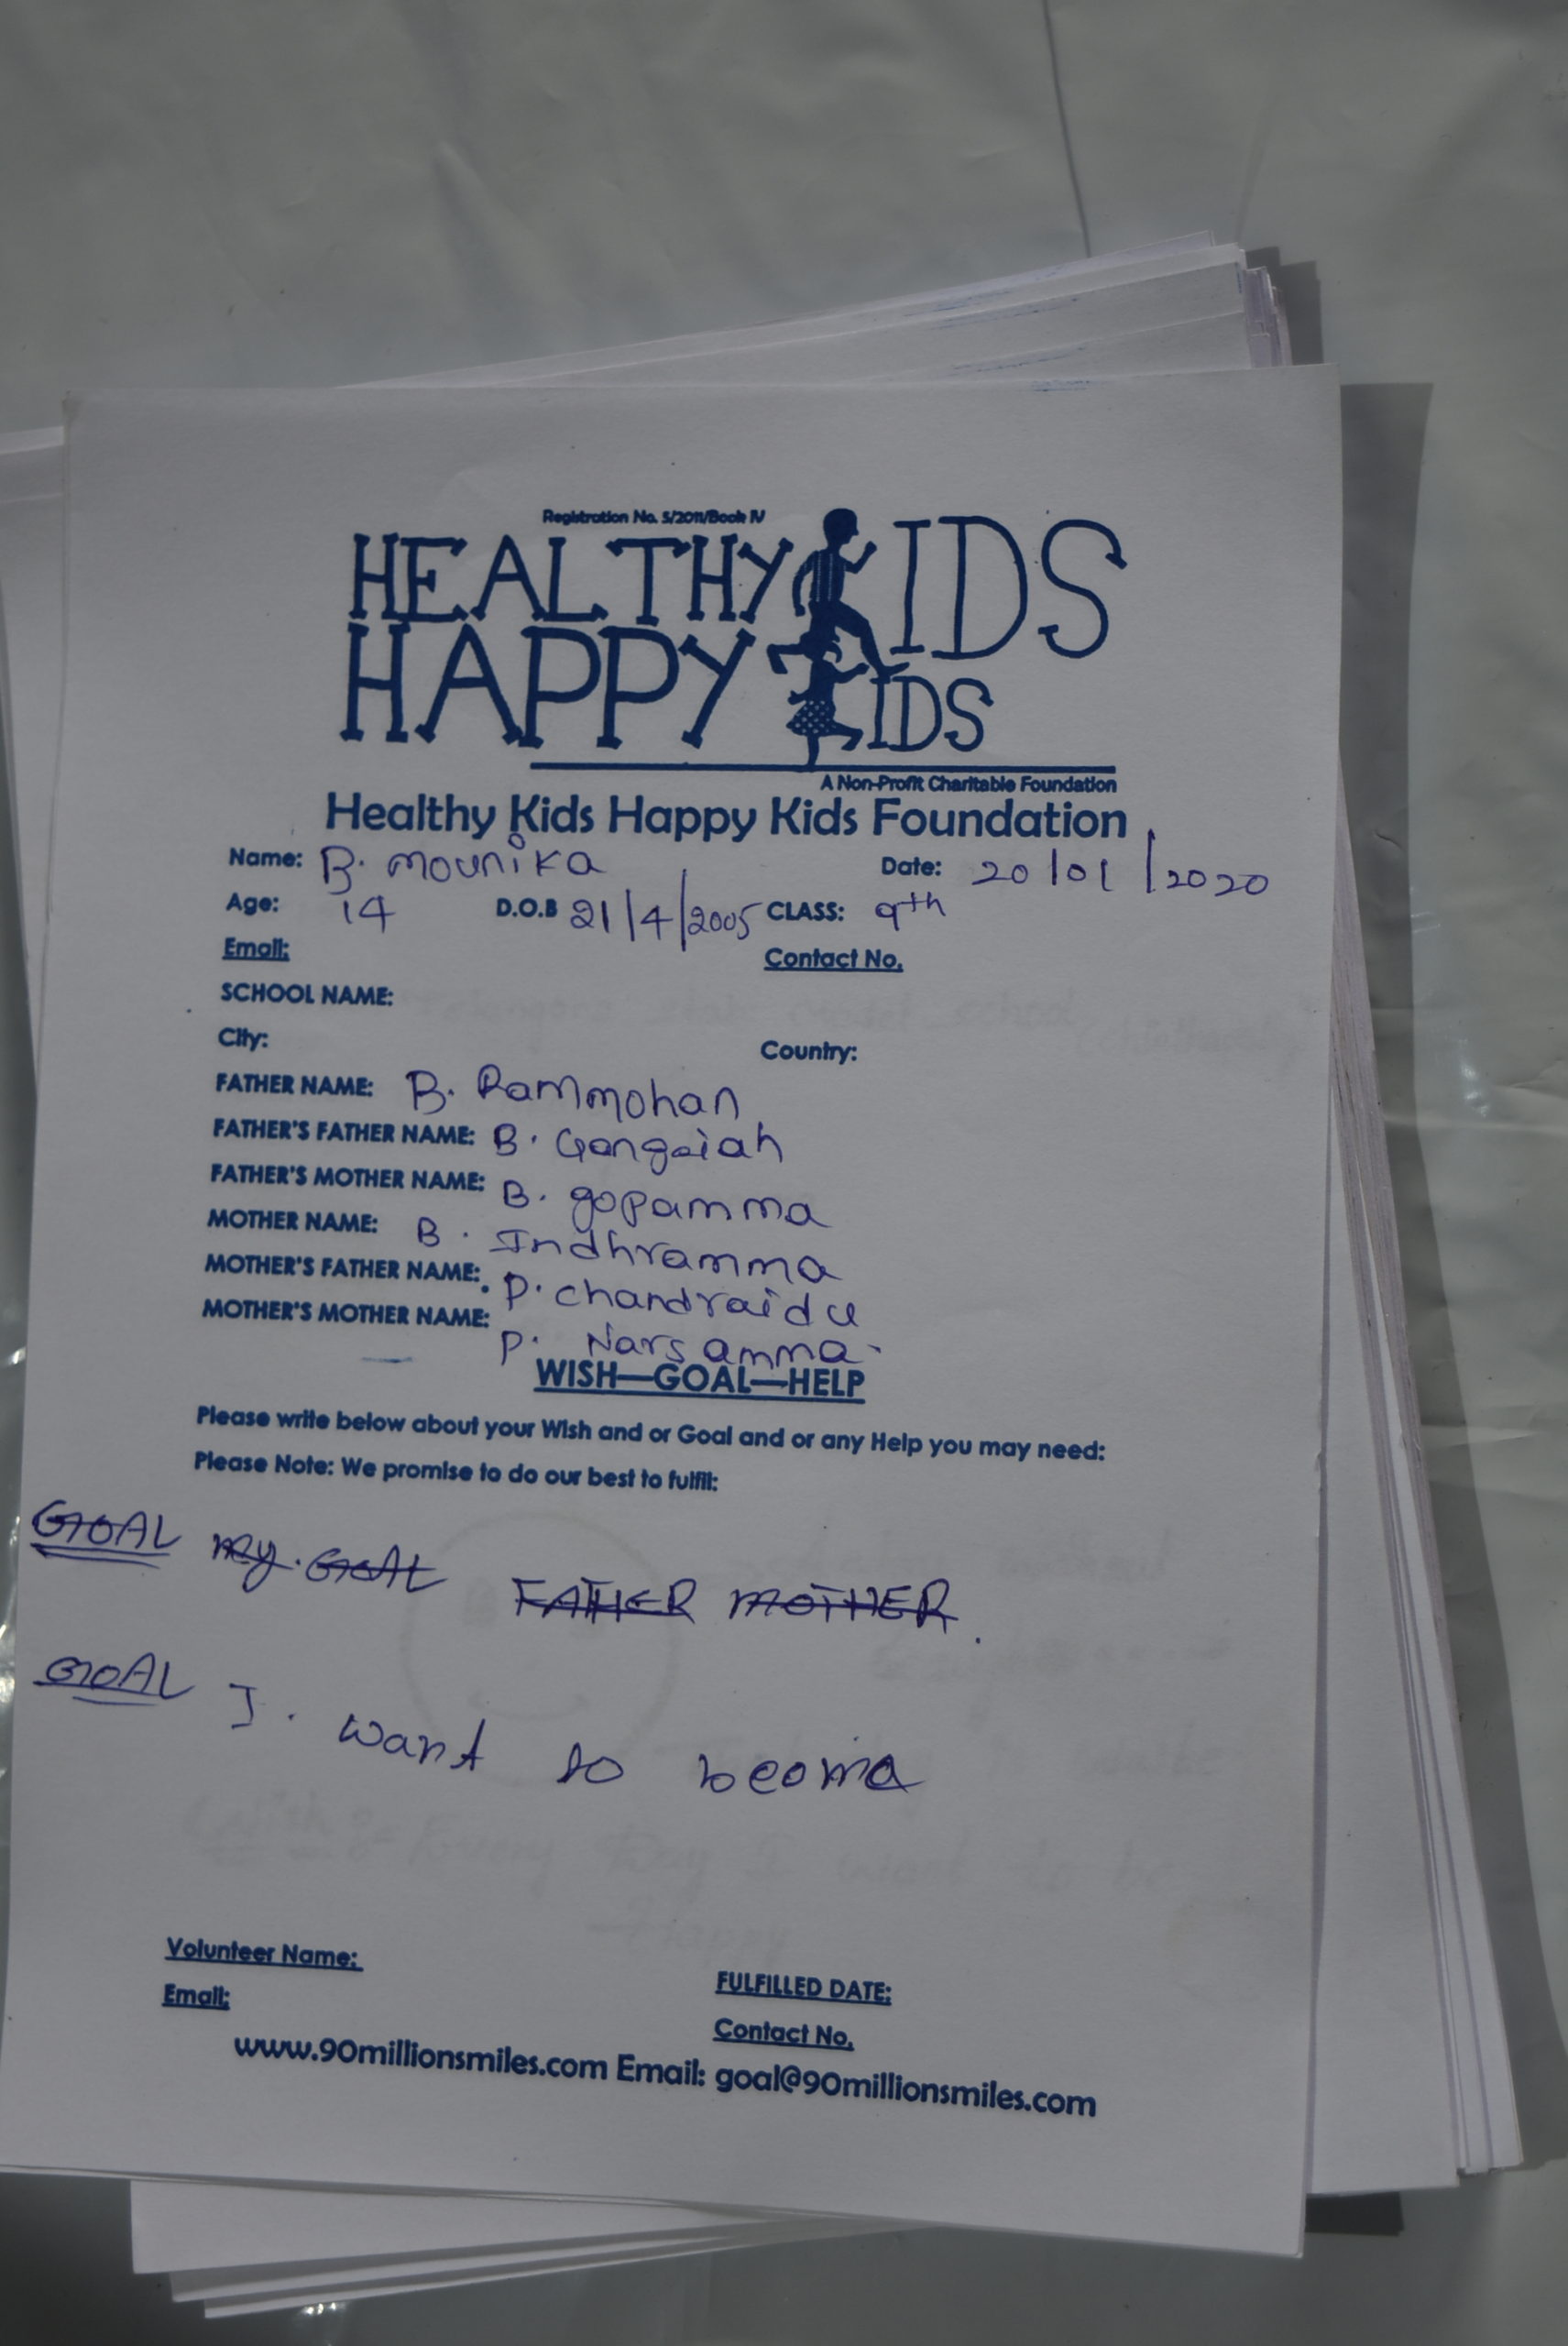 Registration No. 5/2011/Book IV
HEALTHY KIDS
HAPPY KIDS
A Non-Profit Charitable Foundation
Healthy Kids Happy Kids Foundation
Name: B. mounika Date: 20/01/2020
Age: 14 D.O.B 21/4/2005 CLASS: 9th
Email: Contact No.
SCHOOL NAME:
City: Country:
FATHER NAME: B. Rammohan
FATHER'S FATHER NAME: B. Gangaiah
FATHER'S MOTHER NAME: B. gopamma
MOTHER NAME: B. Indhramma
MOTHER'S FATHER NAME: P. chandraidu
MOTHER'S MOTHER NAME: P. Narsamma
WISH—GOAL—HELP
Please write below about your Wish and or Goal and or any Help you may need:
Please Note: We promise to do our best to fulfil:
GOAL my. GOAL FATHER MOTHER.
GOAL I. want to beoma
Volunteer Name:
FULFILLED DATE:
Email:
Contact No.
www.90millionsmiles.com Email: goal@90millionsmiles.com